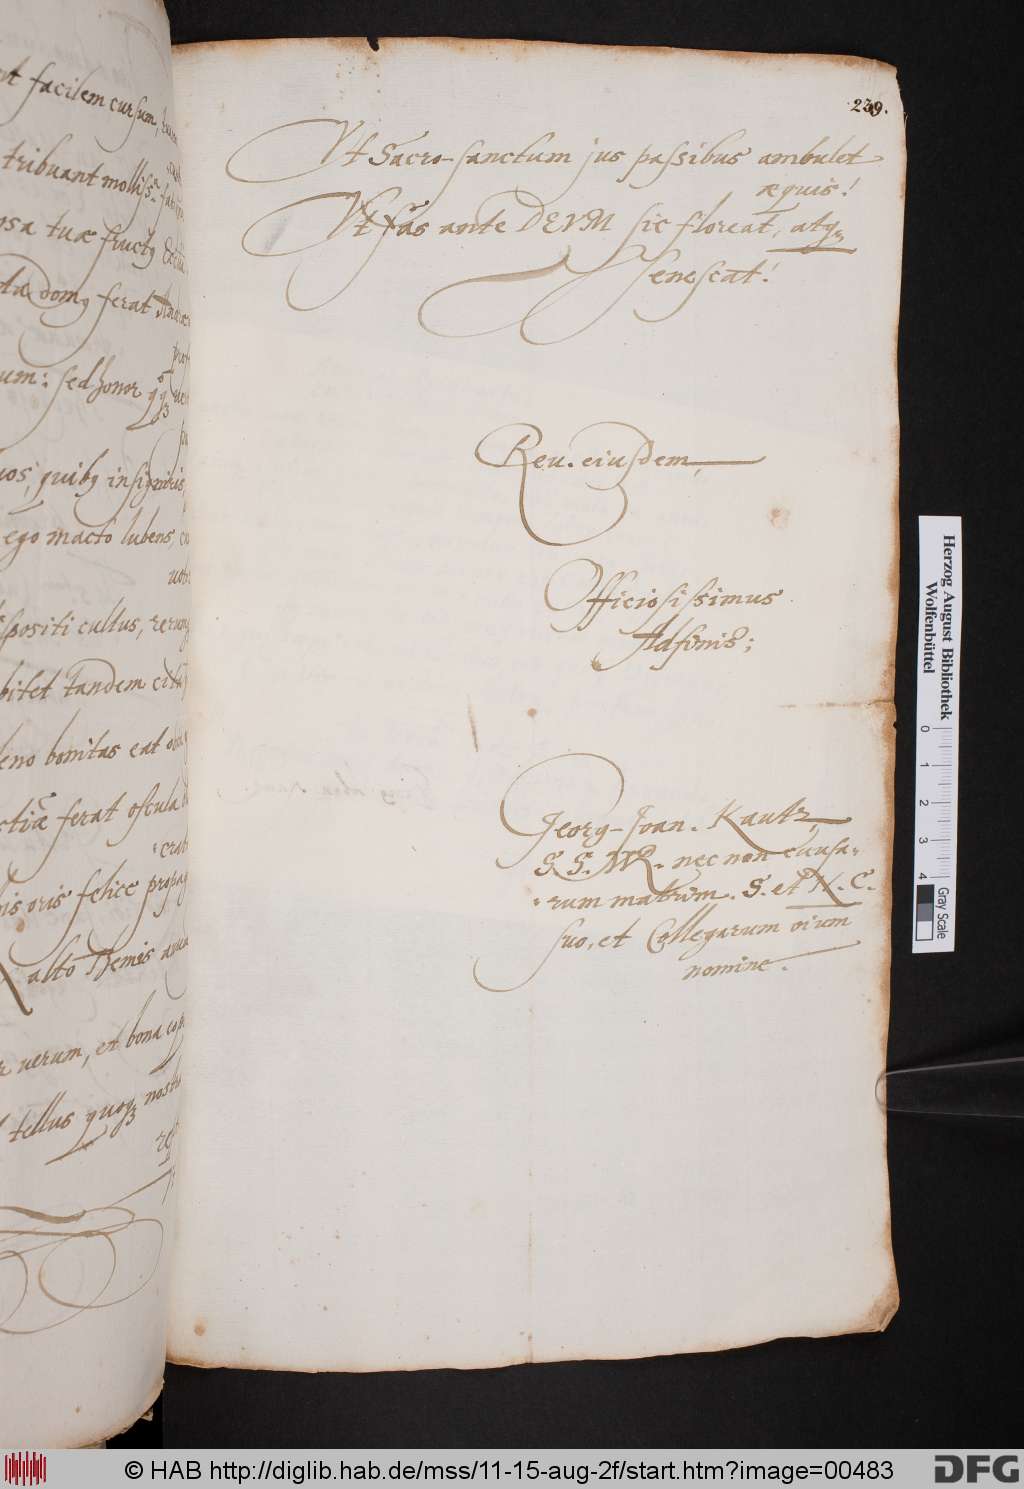 nt facilem cursum,
tribuant molliss
osa tuæ fructq
ta domq ferat
um: sed honor
uos, quibq insignibus,
ego macto lubens,
spositi cultus, rerumq
bitet tandem
eno bonitas eat
ctiæ ferat oscula
nis oris felice propag
alto Themis
uerum, et bona
tellus quoqꝫ nostr
239.
Vt Sacro-sanctum jus passibus ambulet
æquis!
Vt fas ante DEVM sic floreat, atq
senescat!
Reu. eiusdem,
Officiosissimus
Adfinis;
Georg-Joan. Kautz,
S. S. MR. nec non causa-
-rum matrim. S. et N. C.
suo, et Collegarum oium
nomine.
Herzog August Bibliothek
Wolfenbüttel
0 1 2 3 4
Gray Scale
© HAB http://diglib.hab.de/mss/11-15-aug-2f/start.htm?image=00483
DFG